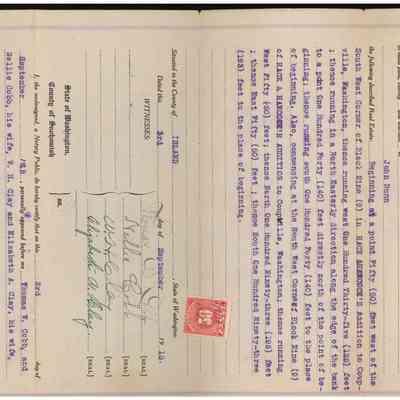 John Dunn
the following described Real Estate: Beginning at a point Fifty (50) feet west of the
South West Corner of Block Nine (9) in RACE & HANCOCK'S Addition to Coup-
ville, Washington, thence running west One Hundred Thirty-five (135) feet
; thence running in a North Easterly direction along the edge of the bank
to a point One Hundred Forty (140) feet directly north of the point of be-
ginning; thence running south One Hundred Forty (140) feet to the place
of beginning. Also, commencing at the South West Corner of Block Nine (9)
of RACE & HANCOCK'S ADDITION to Coupeville, Washington, thence running
West Fifty (50) feet; thence North One Hundred Ninety-three (193) feet
; thence East Fifty (50) feet ; thence South One Hundred Ninety-three
(193) feet to the place of beginning.
Situated in the County of ISLAND , State of Washington.
Dated this 3rd day of September 19 15.
WITNESSES:
(SEAL)
Nellie Cobb (SEAL)
W H Clay (SEAL)
Elizabeth A Clay (SEAL)
State of Washington,
County of Snohomish ss.
I, the undersigned, a Notary Public, do hereby certify that on this 3rd day of
September 19 , personally appeared before me Thomas W. Cobb, and
Nellie Cobb, his wife, W. H. Clay and Elizabeth A. Clay, his wife,